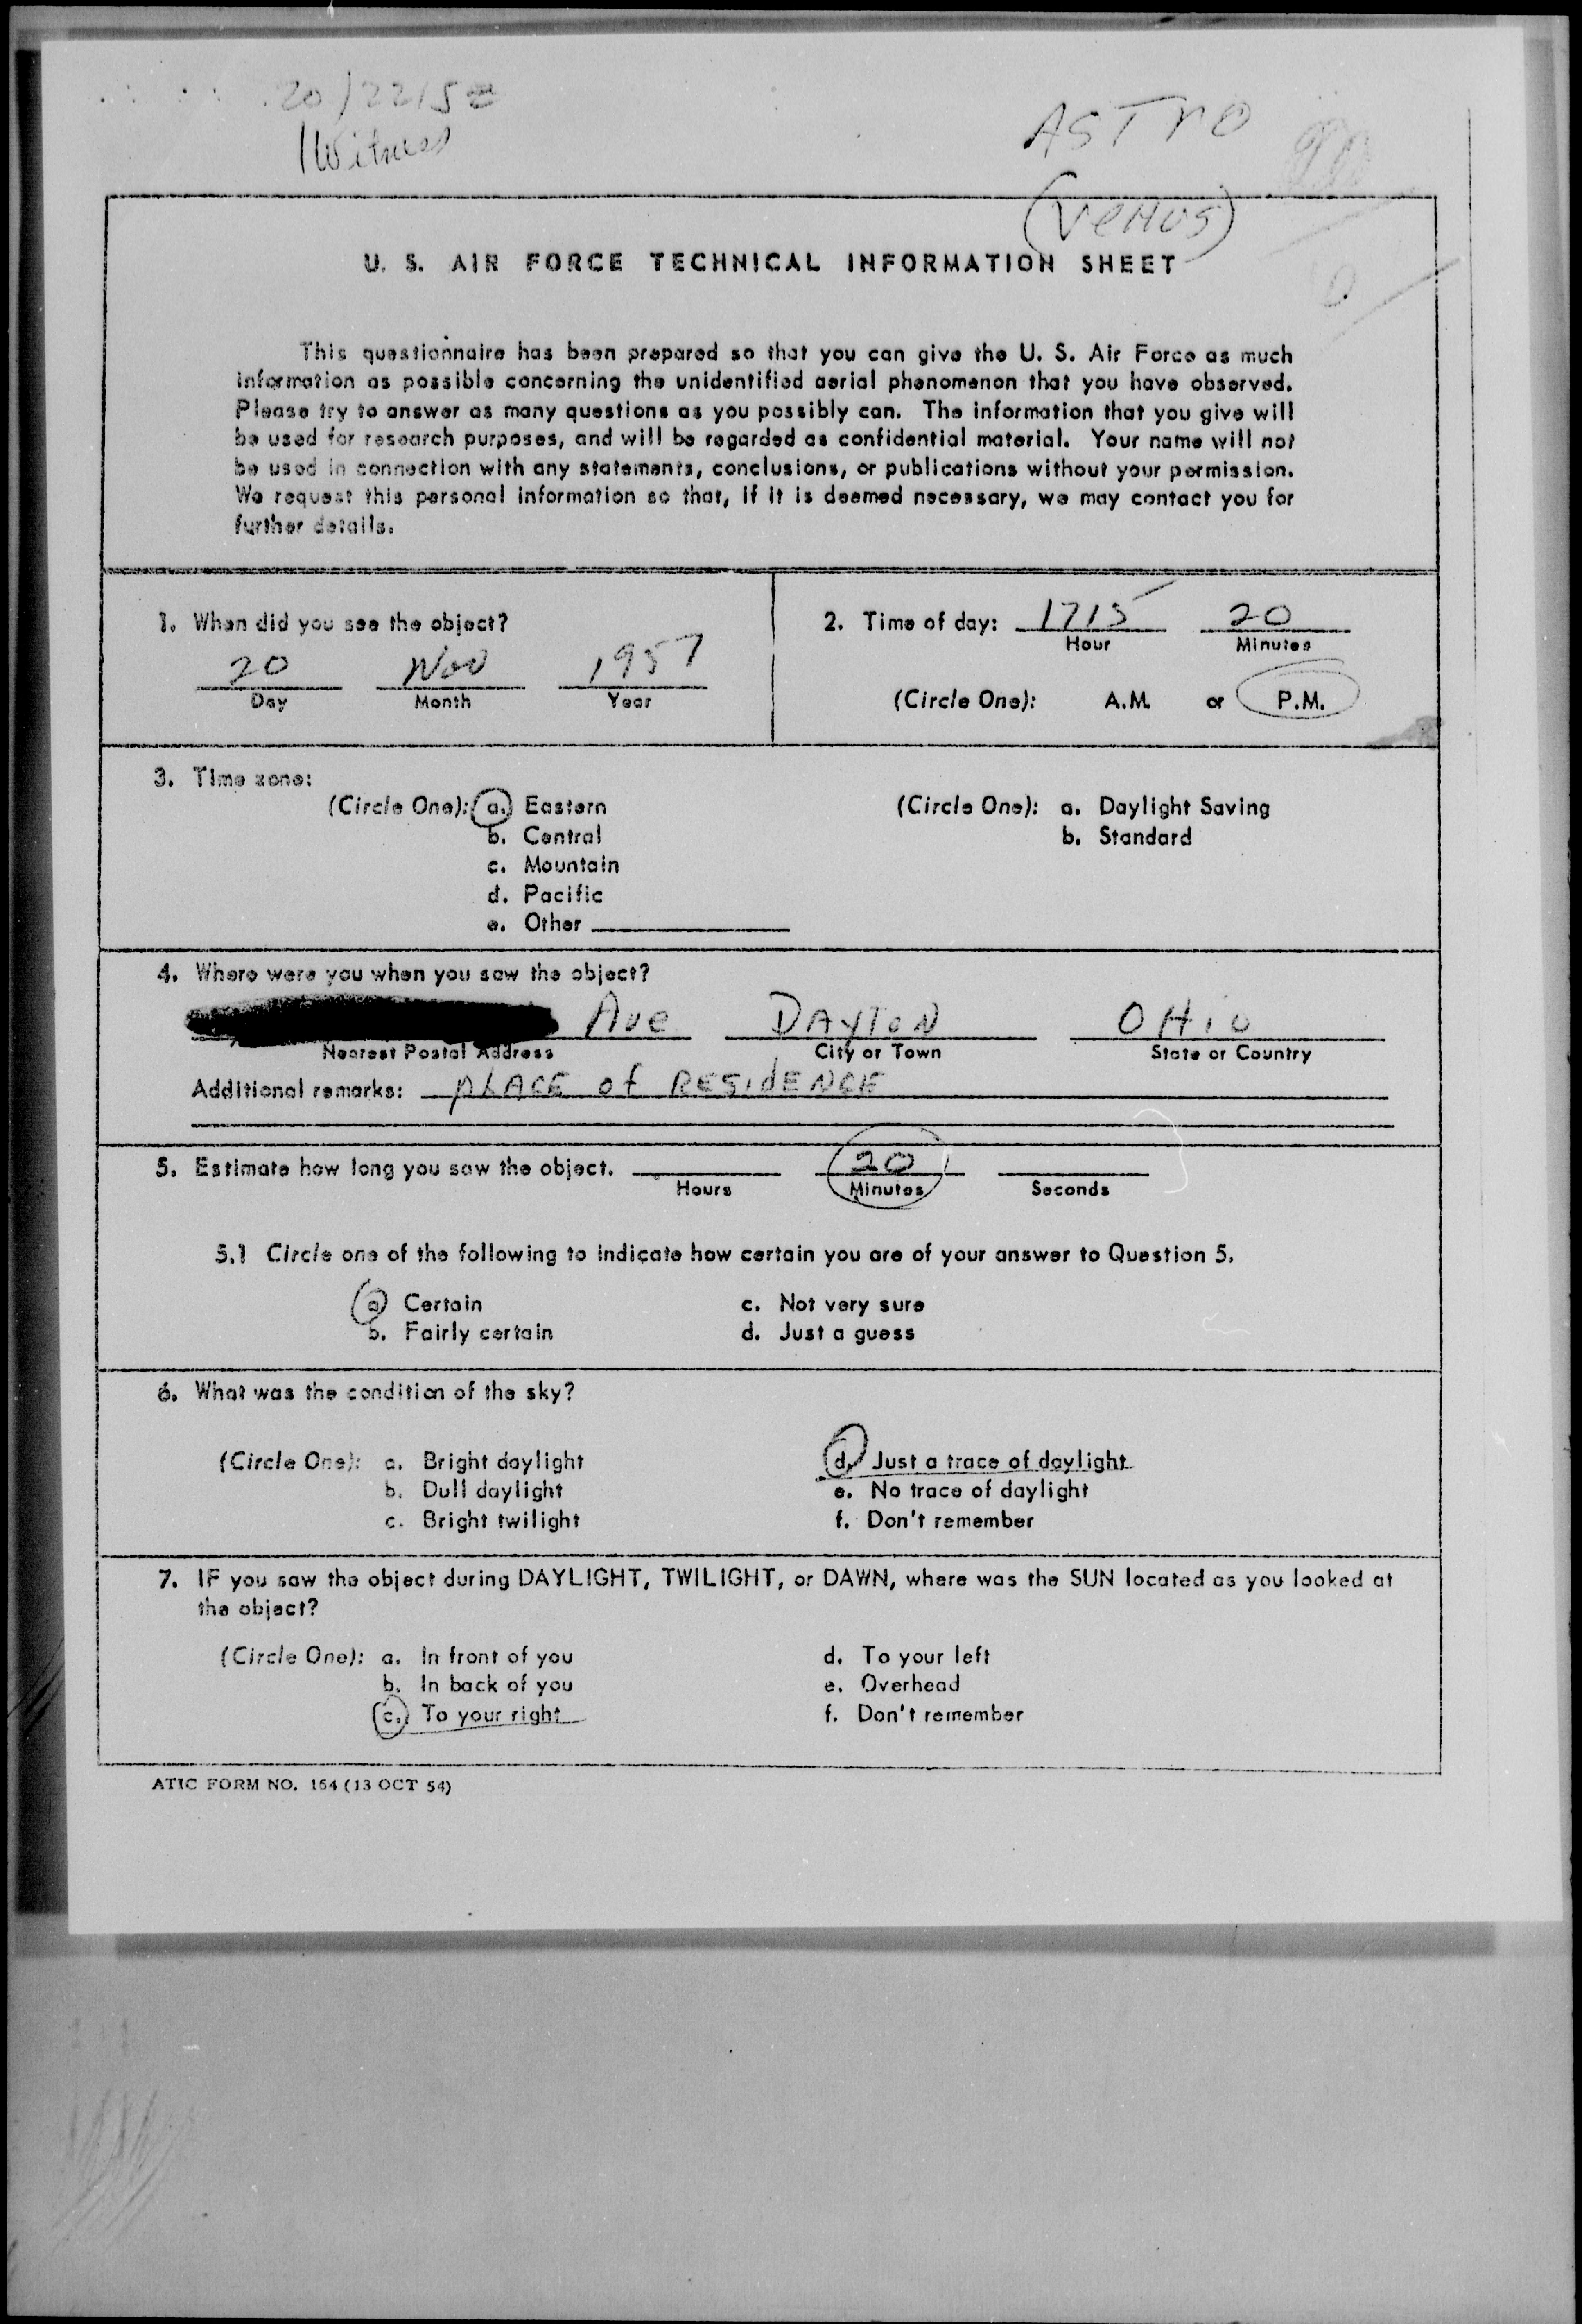 20/2215Z
1 Witness
ASTRO
(VENUS)
U. S. AIR FORCE TECHNICAL INFORMATION SHEET
This questionnaire has been prepared so that you can give the U. S. Air Force as much
information as possible concerning the unidentified aerial phenomenon that you have observed.
Please try to answer as many questions as you possibly can. The information that you give will
be used for research purposes, and will be regarded as confidential material. Your name will not
be used in connection with any statements, conclusions, or publications without your permission.
We request this personal information so that, if it is deemed necessary, we may contact you for
further details.
1. When did you see the object?
20 Nov 1957
Day Month Year
2. Time of day: 1715 20
Hour Minutes
(Circle One): A.M. or P.M.
3. Time zone:
(Circle One): a. Eastern
b. Central
c. Mountain
d. Pacific
e. Other
(Circle One): a. Daylight Saving
b. Standard
4. Where were you when you saw the object?
Ave DAYTON OHIO
Nearest Postal Address City or Town State or Country
Additional remarks: PLACE of RESIDENCE
5. Estimate how long you saw the object. 20
Hours Minutes Seconds
5.1 Circle one of the following to indicate how certain you are of your answer to Question 5.
a. Certain c. Not very sure
b. Fairly certain d. Just a guess
6. What was the condition of the sky?
(Circle One): a. Bright daylight d. Just a trace of daylight
b. Dull daylight e. No trace of daylight
c. Bright twilight f. Don't remember
7. IF you saw the object during DAYLIGHT, TWILIGHT, or DAWN, where was the SUN located as you looked at
the object?
(Circle One): a. In front of you d. To your left
b. In back of you e. Overhead
c. To your right f. Don't remember
ATIC FORM NO. 164 (13 OCT 54)